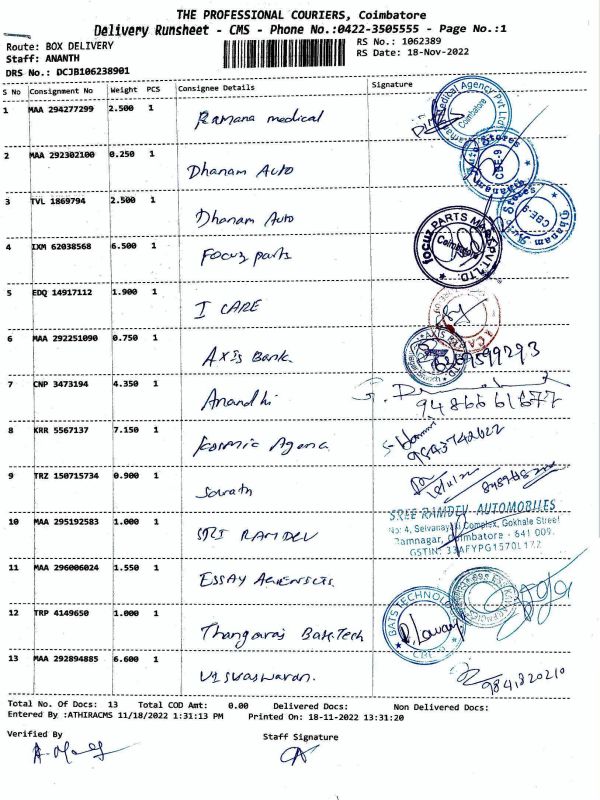 THE PROFESSIONAL COURIERS, Coimbatore
Delivery Runsheet - CMS - Phone No.:0422-3505555 - Page No.:1
Route: BOX DELIVERY
RS No.: 1062389
Staff: ANANTH
RS Date: 18-Nov-2022
DRS No.: DCJB106238901
S No Consignment No Weight PCS Consignee Details Signature
1 MAA 294277299 2.500 1 Ramana medical
Medical Agency Pvt Ltd
Coimbatore
2 MAA 292302100 0.250 1 Dhanam Auto
Auto Stores
CBE-9
3 TVL 1869794 2.500 1 Dhanam Auto
Dhanam Auto Stores
CBE-9
4 IXM 62038568 6.500 1 Focuz parts
FOCUZ PARTS MART PVT LTD
Coimbatore
5 EDQ 14917112 1.900 1 I CARE
6 MAA 292251090 0.750 1 AXIS Bank.
AXIS BANK LTD
7 CNP 3473194 4.350 1 Anandhi
8 KRR 5567137 7.150 1 Kosmic Agenc
9 TRZ 150715734 0.900 1 Sarath
18/11/22
10 MAA 295192583 1.000 1 SRI RAMDEV
SREE RAMDEV AUTOMOBILES
No: 4, Selvanayaki Complex, Gokhale Street
Ramnagar, Coimbatore - 641 009.
GSTIN: 33AFYPG1570L1ZZ
11 MAA 296006024 1.550 1 ESSAY
12 TRP 4149650 1.000 1 Thangaraj Bats.Tech
BATS TECHNOLOGY
13 MAA 292894885 6.600 1 Viswaswaran.
9841820210
Total No. Of Docs: 13 Total COD Amt: 0.00 Delivered Docs: Non Delivered Docs:
Entered By :ATHIRACMS 11/18/2022 1:31:13 PM Printed On: 18-11-2022 13:31:20
Verified By
Staff Signature